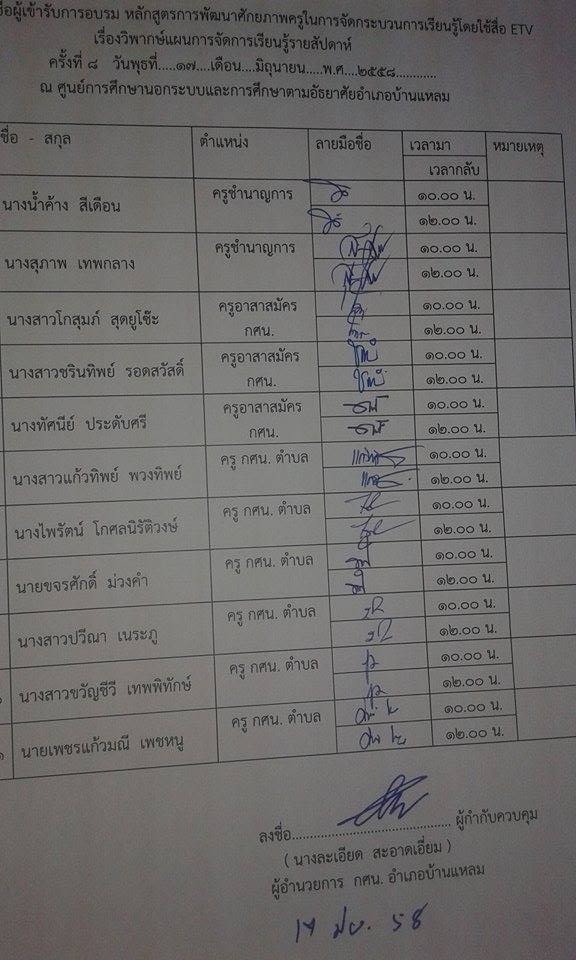 ชื่อผู้เข้ารับการอบรม หลักสูตรการพัฒนาศักยภาพครูในการจัดกระบวนการเรียนรู้โดยใช้สื่อ ETV
เรื่องวิพากษ์แผนการจัดการเรียนรู้รายสัปดาห์
ครั้งที่ ๘ วันพุธที่.....๑๗....เดือน....มิถุนายน.....พ.ศ....๒๕๕๘............
ณ ศูนย์การศึกษานอกระบบและการศึกษาตามอัธยาศัยอำเภอบ้านแหลม
ชื่อ - สกุล ตำแหน่ง ลายมือชื่อ เวลามา หมายเหตุ
เวลากลับ
นางน้ำค้าง สีเดือน ครูชำนาญการ ๑๐.๐๐ น.
๑๒.๐๐ น.
นางสุภาพ เทพกลาง ครูชำนาญการ ๑๐.๐๐ น.
๑๒.๐๐ น.
นางสาวโกสุมภ์ สุดยูโซ๊ะ ครูอาสาสมัคร กศน. ๑๐.๐๐ น.
๑๒.๐๐ น.
นางสาวชรินทิพย์ รอดสวัสดิ์ ครูอาสาสมัคร กศน. ๑๐.๐๐ น.
๑๒.๐๐ น.
นางทัศนีย์ ประดับศรี ครูอาสาสมัคร กศน. ๑๐.๐๐ น.
๑๒.๐๐ น.
นางสาวแก้วทิพย์ พวงทิพย์ ครู กศน. ตำบล ๑๐.๐๐ น.
๑๒.๐๐ น.
นางไพรัตน์ โกศลนิรัติวงษ์ ครู กศน. ตำบล ๑๐.๐๐ น.
๑๒.๐๐ น.
นายขจรศักดิ์ ม่วงคำ ครู กศน. ตำบล ๑๐.๐๐ น.
๑๒.๐๐ น.
นางสาวปวีณา เนระภู ครู กศน. ตำบล ๑๐.๐๐ น.
๑๒.๐๐ น.
นางสาวขวัญชีวี เทพพิทักษ์ ครู กศน. ตำบล ๑๐.๐๐ น.
๑๒.๐๐ น.
นายเพชรแก้วมณี เพชหนู ครู กศน. ตำบล ๑๐.๐๐ น.
๑๒.๐๐ น.
ลงชื่อ........................................ ผู้กำกับควบคุม
( นางละเอียด สะอาดเอี่ยม )
ผู้อำนวยการ กศน. อำเภอบ้านแหลม
17 มิย. 58